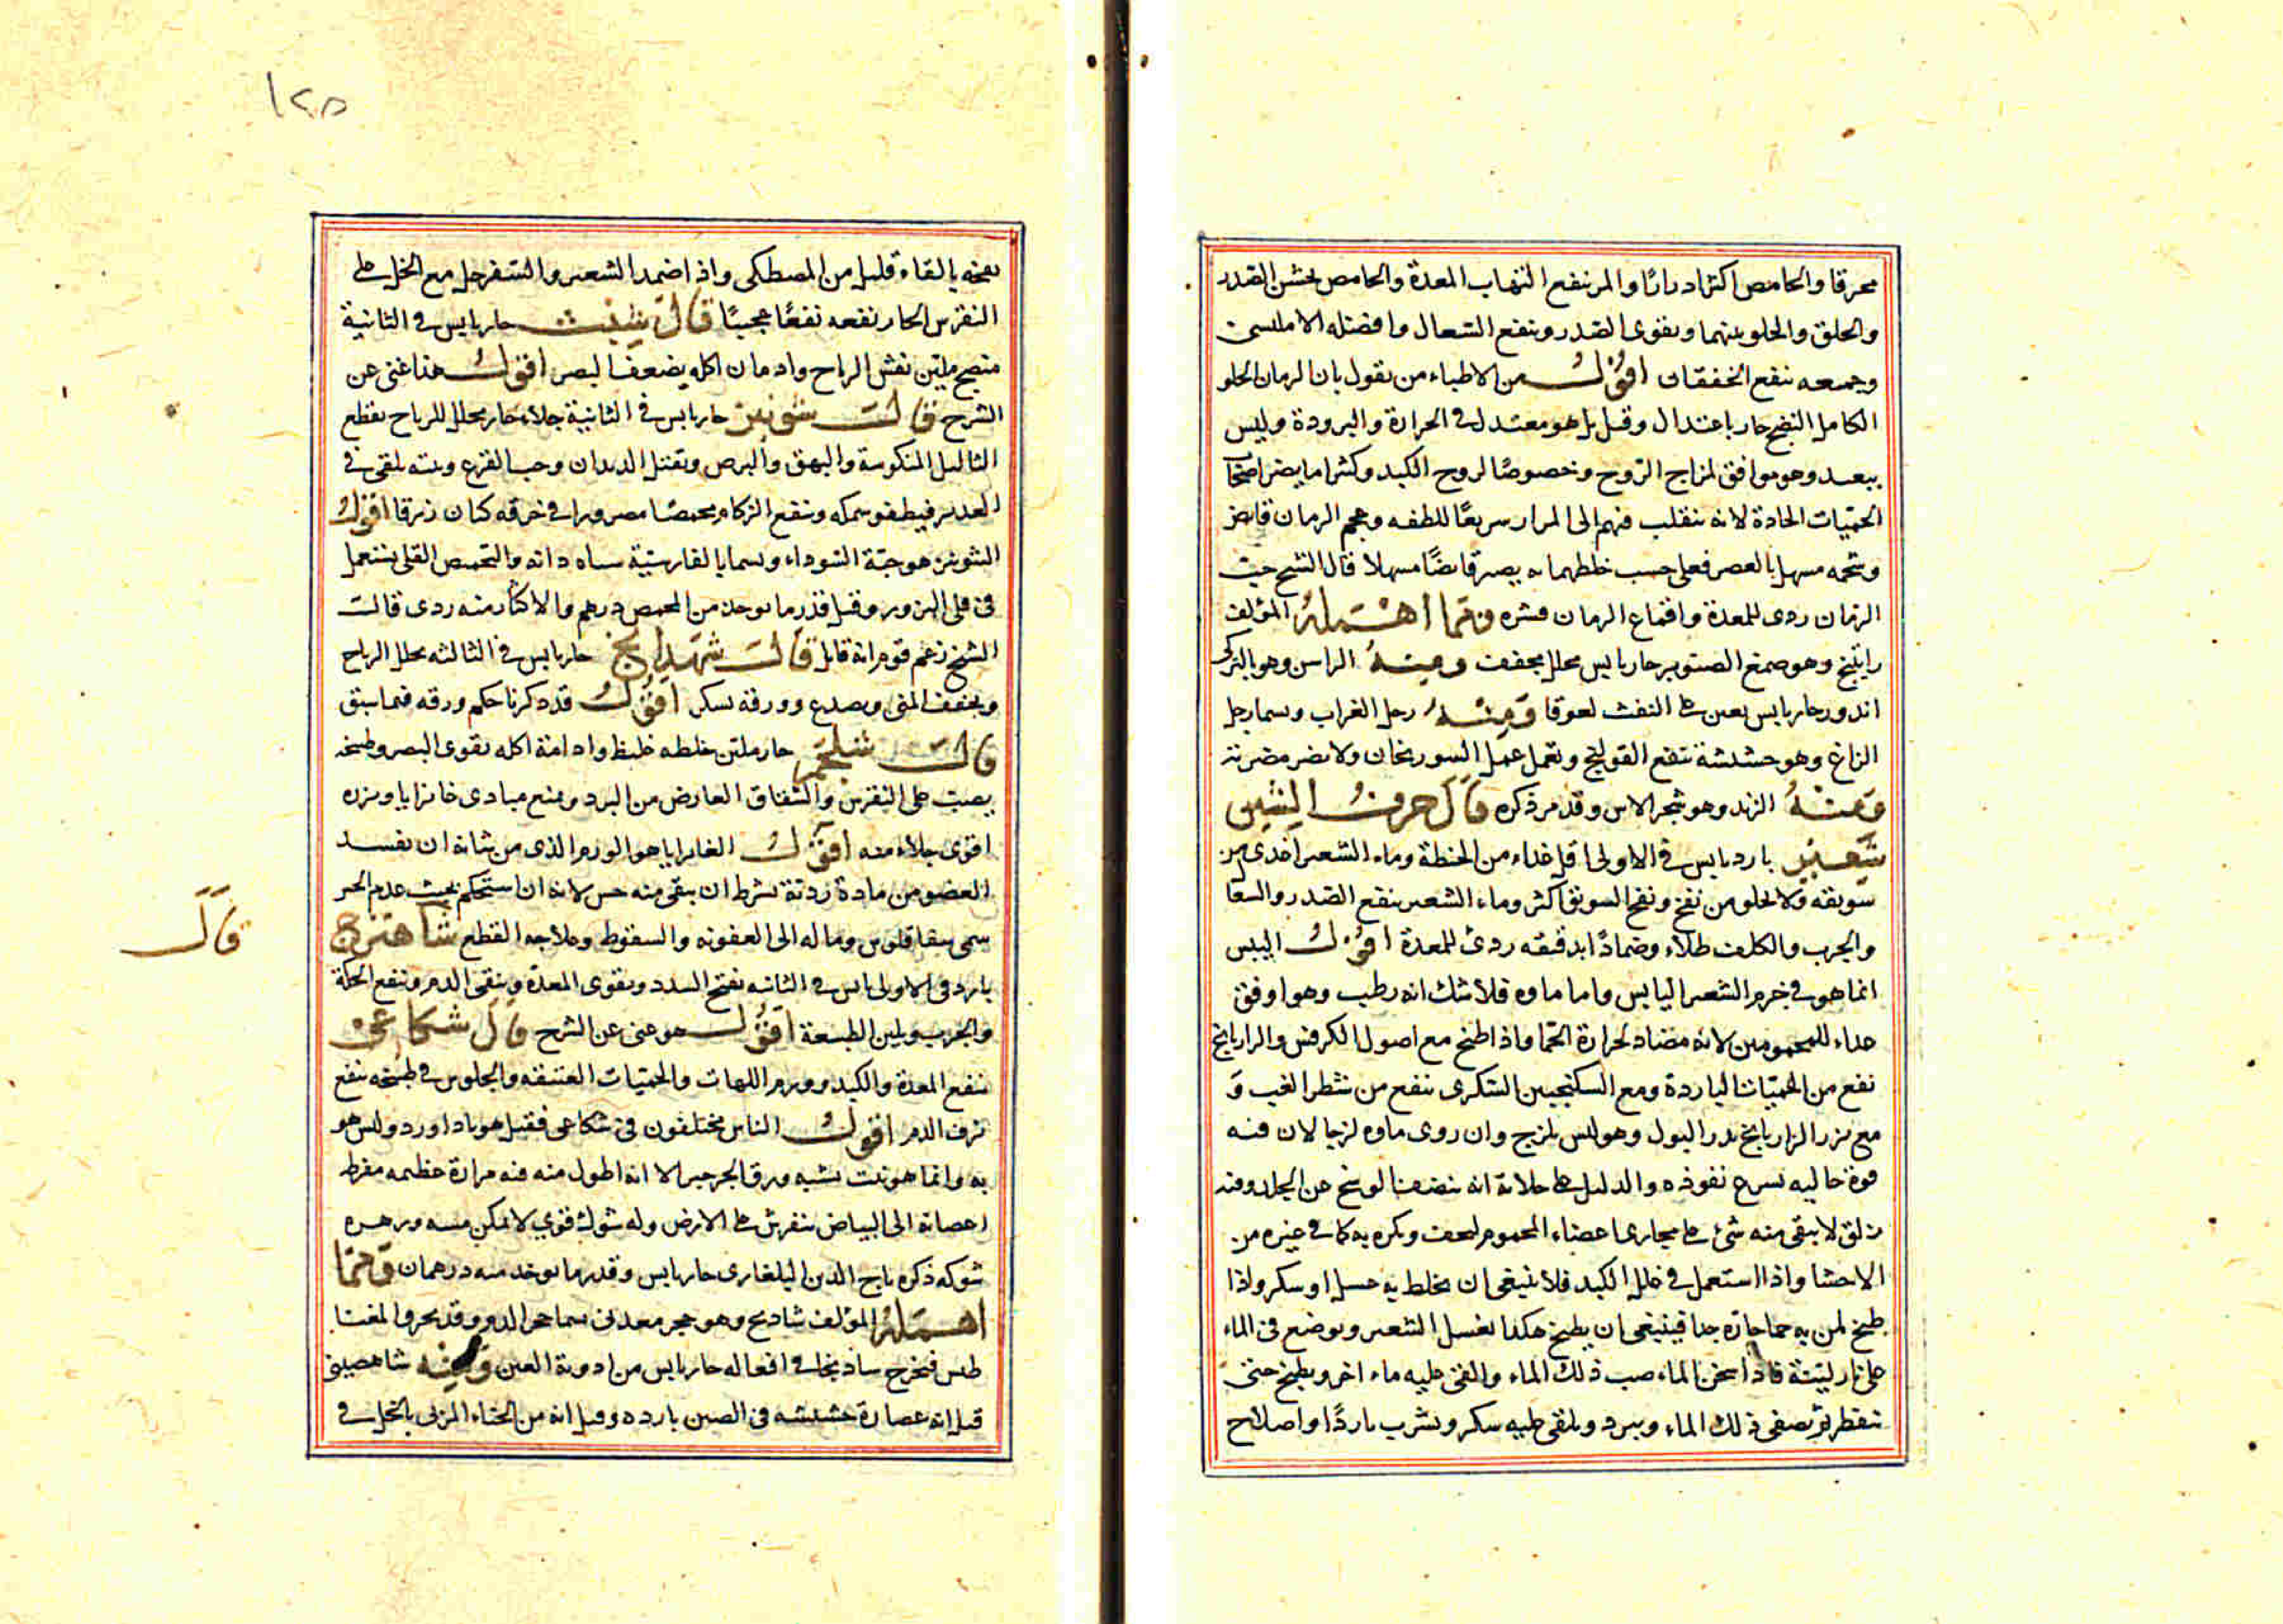 محرقا والحامض اكثر ادرارا والمر ينفع التهاب المعدة والحامض يخشن الصدر
والحلق والحلو يلينهما ويقوى الصدر وينفع السعال وافضله الامليسى
وجميعه ينفع الخفقان اقول من الاطباء من يقول بان الرمان الحلو
الكامل النضج حار باعتدال وقيل بل هو معتدل فى الحرارة والبرودة وليس
ببعيد وهو موافق لمزاج الروح وخصوصا لروح الكبد وكثيرا ما يضر اصحاب
الحميات الحادة لانه ينقلب فيهم الى المرار سريعا للطفه وعجم الرمان قابض
وشحمه مسهل بالعصر فعلى حسب خلطهما به يصير قابضا مسهلا قال الشيخ حب
الرمان ردى للمعدة واقماع الرمان قشره ومما اهمله المؤلف
راتينج وهو صمغ الصنوبر حار يابس محلل مجفف ومنه الراسن وهو بالتركى
اندوز حار يابس يعين على النفث لعوقا ومنه رجل الغراب ويسما رجل
الزاغ وهو حشيشة تنفع القولنج وتعمل عمل السورنجان ولا يضر مضرته
ومنه الرند وهو شجر الاس وقد مر ذكره قال حرف الشين
شعير بارد يابس فى الاولى اقل غذاء من الحنطة وماء الشعير اغذى من
سويقه ولا يخلو من نفخ ونفخ السويق اكثر وماء الشعير ينفع الصدر والسعا
والجرب والكلف طلاء وضمادا بدقيقه ردئ للمعدة اقول اليبس
انما هو فى جرم الشعير اليابس واما ماوه فلا شك انه رطب وهو اوفق
غذاء للمحمومين لانه مضاد لحرارة الحما واذا طبخ مع اصول الكرفس والرازيانج
نفع من الحميات الباردة ومع السكنجبين السكرى ينفع من شطر الغب و
مع بزر الرازيانج يدر البول وهو ليس بلزج وان روى ماوه لزجا لان فيه
قوة جاليه يسرع نفوذه والدليل على جلائه انه ينضف الوسخ عن الجلد وفيه
زلق لا يبقى منه شئ على مجارى اعضاء المحموم
الاحشا واذا استعمل فى علل الكبد فلا ينبغى ان يخلط به عسل او سكر واذا
طبخ لمن به حما حارة جدا فينبغى ان يطبخ هكذا يغسل الشعير ويوضع فى الماء
على نار لينة فاذا سخن الماء صب ذلك الماء والقى عليه ماء اخر ويطبخ حتى
ينفطر ثم يصفى ذلك الماء ويبرد ويلقى عليه سكر ويشرب باردا واصلاح
١٢٥
نفخه بالقاء قليل من المصطكى واذا ضمد الشعير والسفرجل مع الخل على
النقرس الحار نفعه نفعا عجيبا قال شبث حار يابس فى الثانية
منضج ملين نفش الرياح وادمان اكله يضعف البصر اقول هذا غنى عن
الشرح قال شونيز حار يابس فى الثانية جلاء حار محلل للرياح يقطع
الثاليل المنكوسة والبهق والبرص ويقتل الديدان وحب القرع ومنه يلقى فى
الغدير فيطفو سمكه وينفع الزكام محمصا مصرورا فى خرقه كتان زرقا اقول
الشونيز هو حبة السوداء ويسما بالفارسية سياه دانه والتحميص القلى يستعمل
فى قلى البزور وقيل قدر ما يوخذ من المحمص درهم والاكثار منه ردى قال
الشيخ زعم قوم انه قاتل قال شهدانج حار يابس فى الثالثه يحلل الرياح
ويجفف المنى ويصدع وورقه يسكر اقول قد ذكرنا حكم ورقه فيما سبق
قال شلجم حار ملين خلطه غليظ وادامة اكله يقوى البصر وطبخه
يصب على النقرس والشقاق العارض من البرد ويمنع مبادى غانرايا وبزره
اقوى جلاء منه اقول الغانرايا هو الورم الذى من شانه ان يفسد
العضو من مادة ردئة بشرط ان يبقى منه حس لانه ان استحكم بحيث عدم الحس
سمى سقاقلوس وما له الى العفونه والسقوط وعلاجه القطع شاهترج
قال
بارد فى الاولى يابس فى الثانيه يفتح السدد ويقوى المعدة وينقى الدم وينفع الحكة
والجرب ويلين الطبيعة اقول هو غنى عن الشرح قال شكاعى
ينفع المعدة والكبد وورم اللهات والحميات العتيقه والجلوس فى طبيخه ينفع
نزف الدم اقول الناس مختلفون فى شكاعى فقيل هو باداورد وليس هو
به وانما هو نبت يشبه ورق الجرجير الا انه اطول منه فيه مرارة عظيمه مفرط
اغصانه الى البياض ينفرش على الارض وله شوك قوى لا يمكن مسه وزهره
شوكه ذكره تاج الدين البلغارى حار يابس وقدر ما يوخذ منه درهمان ومما
اهمله المؤلف شادنج وهو حجر معدنى يسما حجر الدم وقد يحرق المغنا
طيس فيخرج شادنجا فى افعاله حار يابس من ادوية العين ومنه شاهصينى
قيل انه عصارة حشيشه فى الصين بارده وقيل انه من الحناء المربى بالخل فى